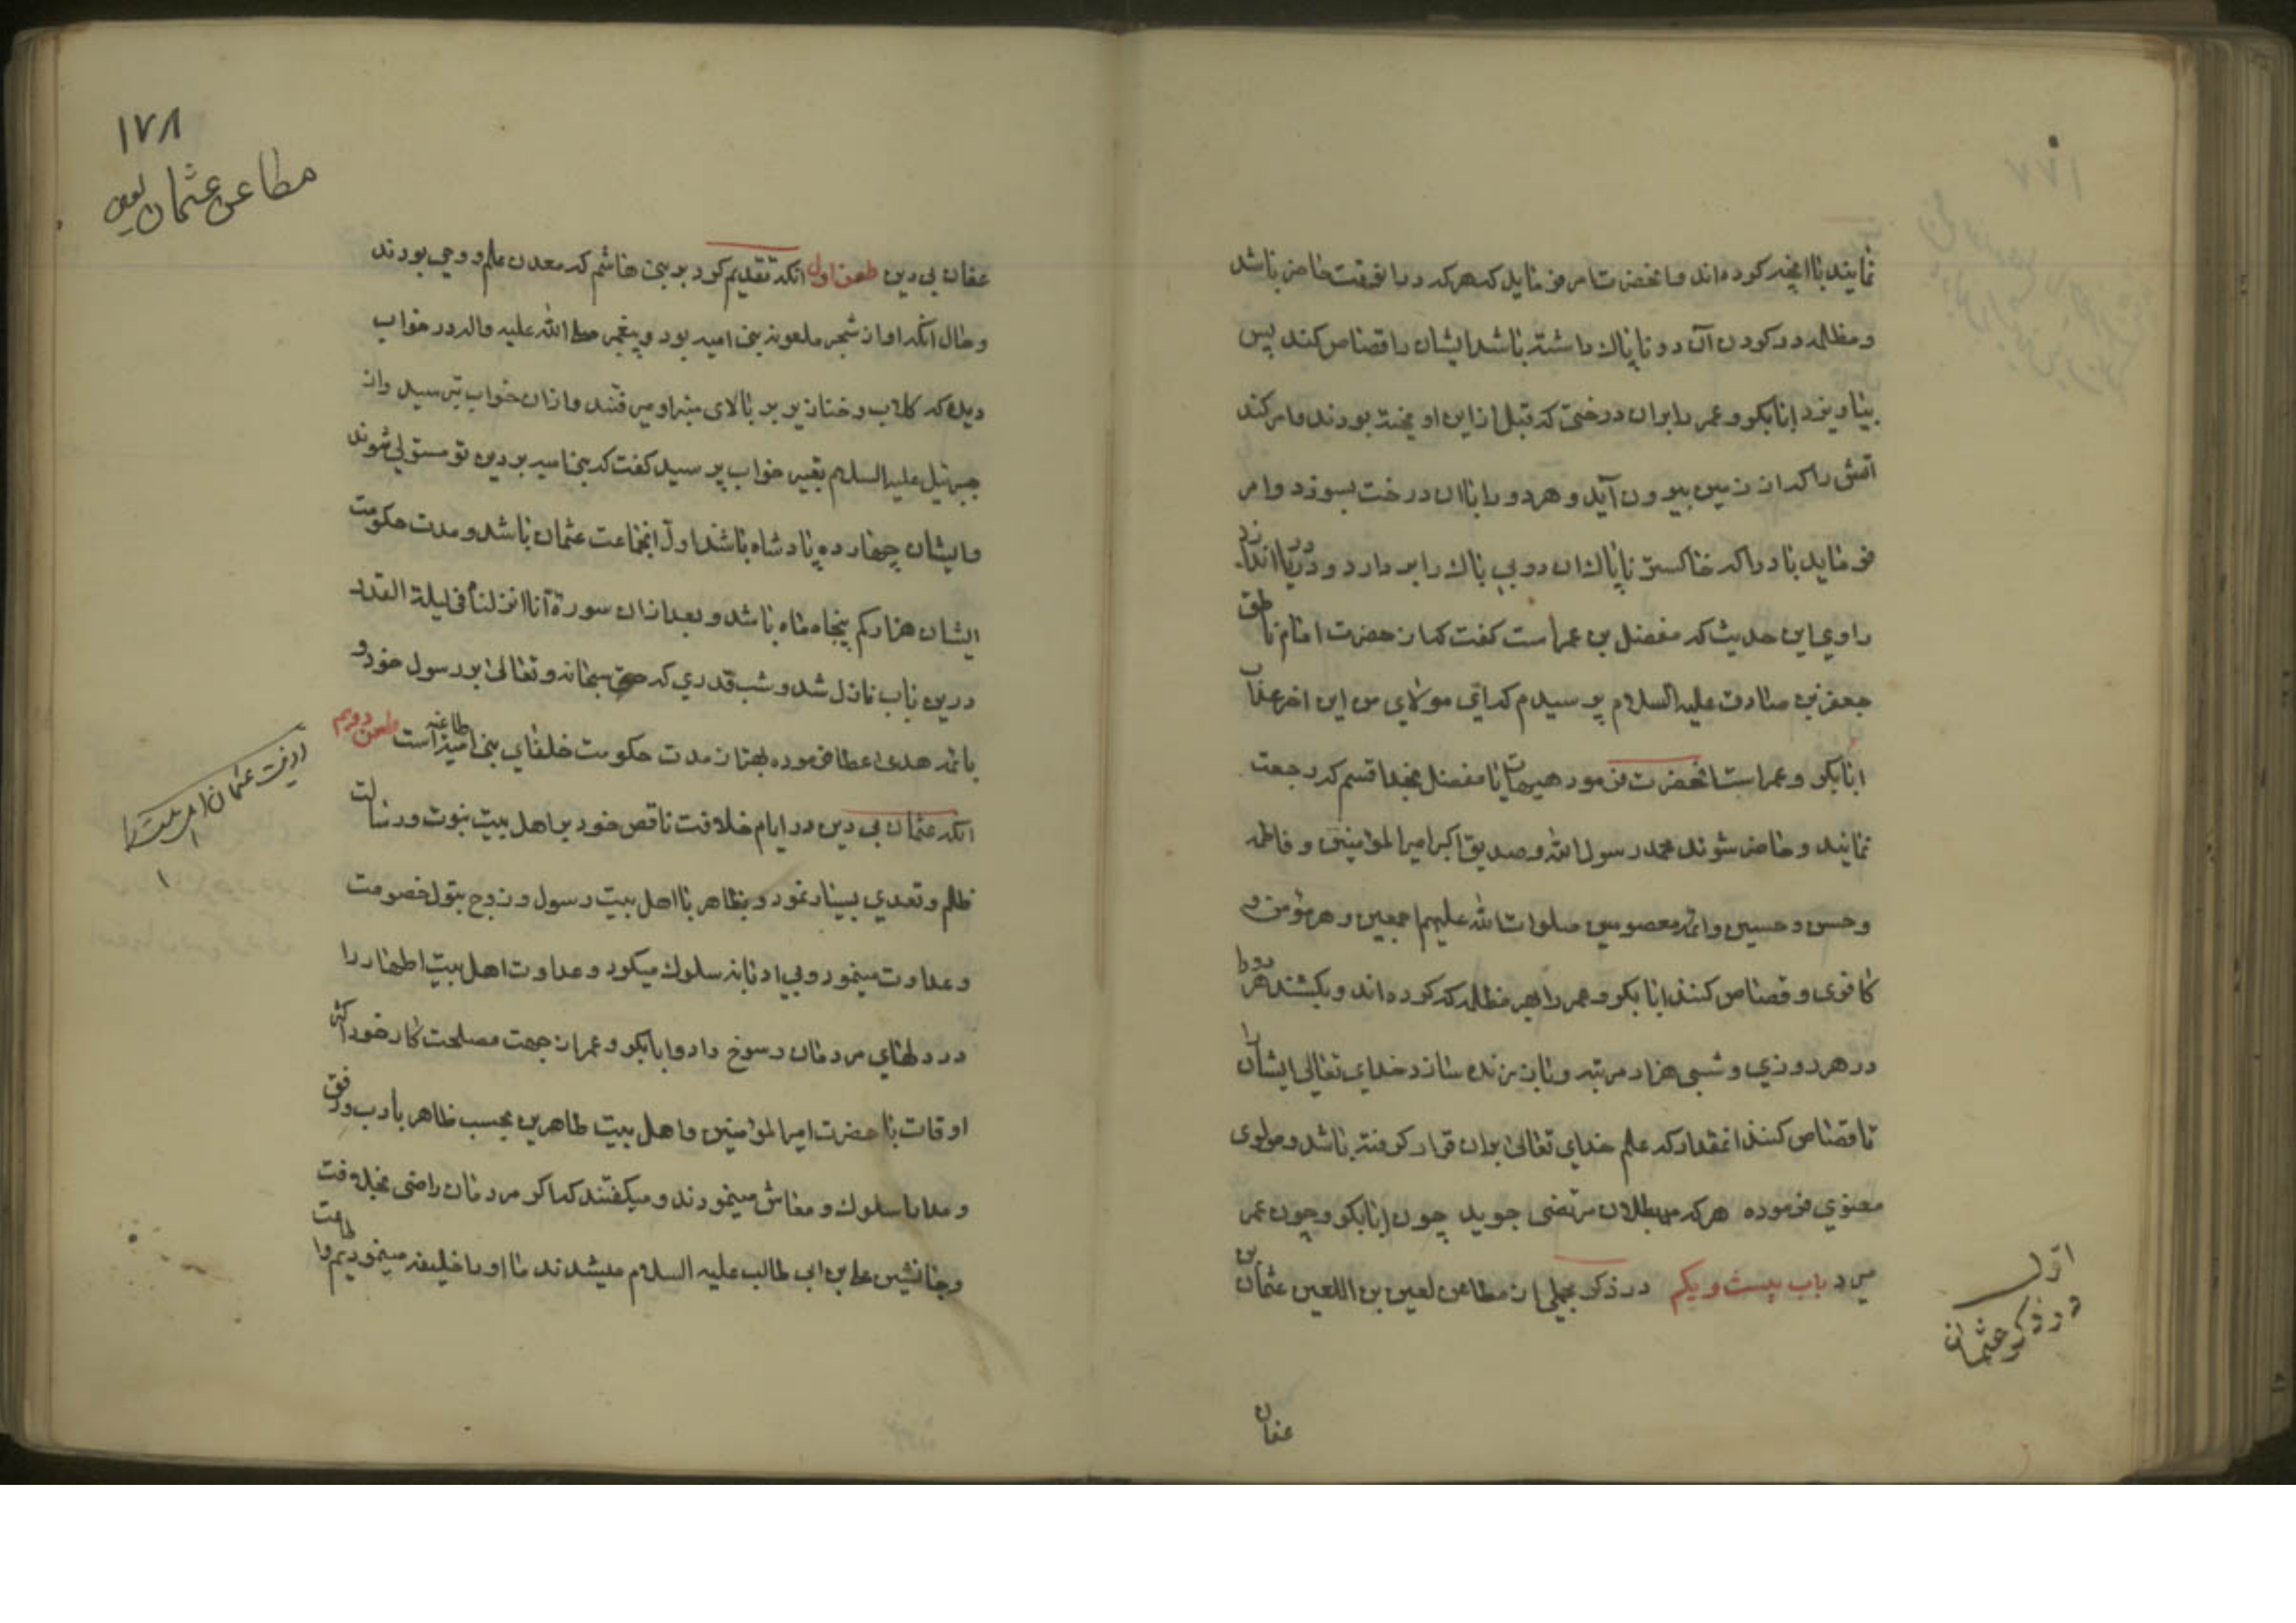 نمایند باانچه کرده‌اند و انحضرت امر فرماید که هر که درانوقت حاضر باشد
و مظلمه در کردن آن دو ناپاک داشته باشد ایشان را قصاص کند پس
بیاویزد ابابکر و عمر را بران درختی که قبل ازاین اویخته بودند و امر کند
آتش را که از زمین بیرون آید و هر دو را باان درخت بسوزد و امر
فرماید باد را که خاکستر ناپاک ان دو بی باک را بردارد و در دریا اندازد
راوی این حدیث که مفضل بن عمر است کفت که از حضرت امام ناطق
جعفر بن صادق علیه السلام پرسیدم که ای مولای من این اخر عذاب
ابابکر و عمر است انحضرت فرمود هیهات یا مفضل بخدا قسم که رجعت
نمایند و حاضر شوند محمد رسول الله و صدیق اکبر امیرالمؤمنین و فاطمه
و حسن و حسین و ائمه معصومین صلوات الله علیهم اجمعین و هر مؤمن و
کافری و قصاص کنند ابابکر و عمر را بهر مظلمه که کرده‌اند و بکشند هر دو را
در هر روزی و شبی هزار مرتبه و باز زنده سازد خدای تعالی ایشان را
تا قصاص کنند انمقدار که علم خدای تعالی بران قرار کرفته باشد و مولوی
معنوی فرموده هر که بطلان مرتضی جوید چون ابابکر و چون عمر
میرد باب بیست و یکم در ذکر مجملی از مطاعن لعین بن اللعین عثمان بن
اول
در ذکر عثمان
عفان
۱۷۸
مطاعن عثمان لعین
عفان بی دین طعن اول انکه تقدیم کرد بر بنی هاشم که معدن علم و وحی بودند
و حال انکه او از شجره ملعونه بنی امیه بود و پیغمبر صلی الله علیه واله در خواب
دید که کلاب و خنازیر بر بالای منبر او میرفتند و ازان خواب بترسید و از
جبرئیل علیه السلام تعبیر خواب پرسید کفت که بنی امیه بر دین تو مستولی شوند
و ایشان چهارده پادشاه باشند اول انجماعت عثمان باشد و مدت حکومت
ایشان هزار کم پنجاه ماه باشد و بعد ازان سورة انا انزلناه فی لیلة القدر
درین باب نازل شد و شب قدری که حق سبحانه و تعالی بر رسول خود و
بائمه هدی اعطا فرموده بهتر از مدت حکومت خلفای بنی امیه طاغیه است طعن دویم
انکه عثمان بی دین در ایام خلافت ناقص خود بر اهل بیت نبوت و رسالت
ظلم و تعدی بسیار نمود و بظاهر با اهل بیت رسول و زوج بتول خصومت
و عداوت مینمود و بی ادبانه سلوک میکرد و عداوت اهل بیت اطهار را
در دلهای مردمان رسوخ داد و ابابکر و عمر از جهت مصلحت کار خود اکثر
اوقات با حضرت امیرالمؤمنین و اهل بیت طاهرین بحسب ظاهر بادب و رفق
و مدارا سلوک و معاش مینمودند و میکفتند که اکر مردمان راضی بخلافت
و جانشین علی بن ابی طالب علیه السلام میشدند ما او را خلیفه مینمودیم و اطاعت